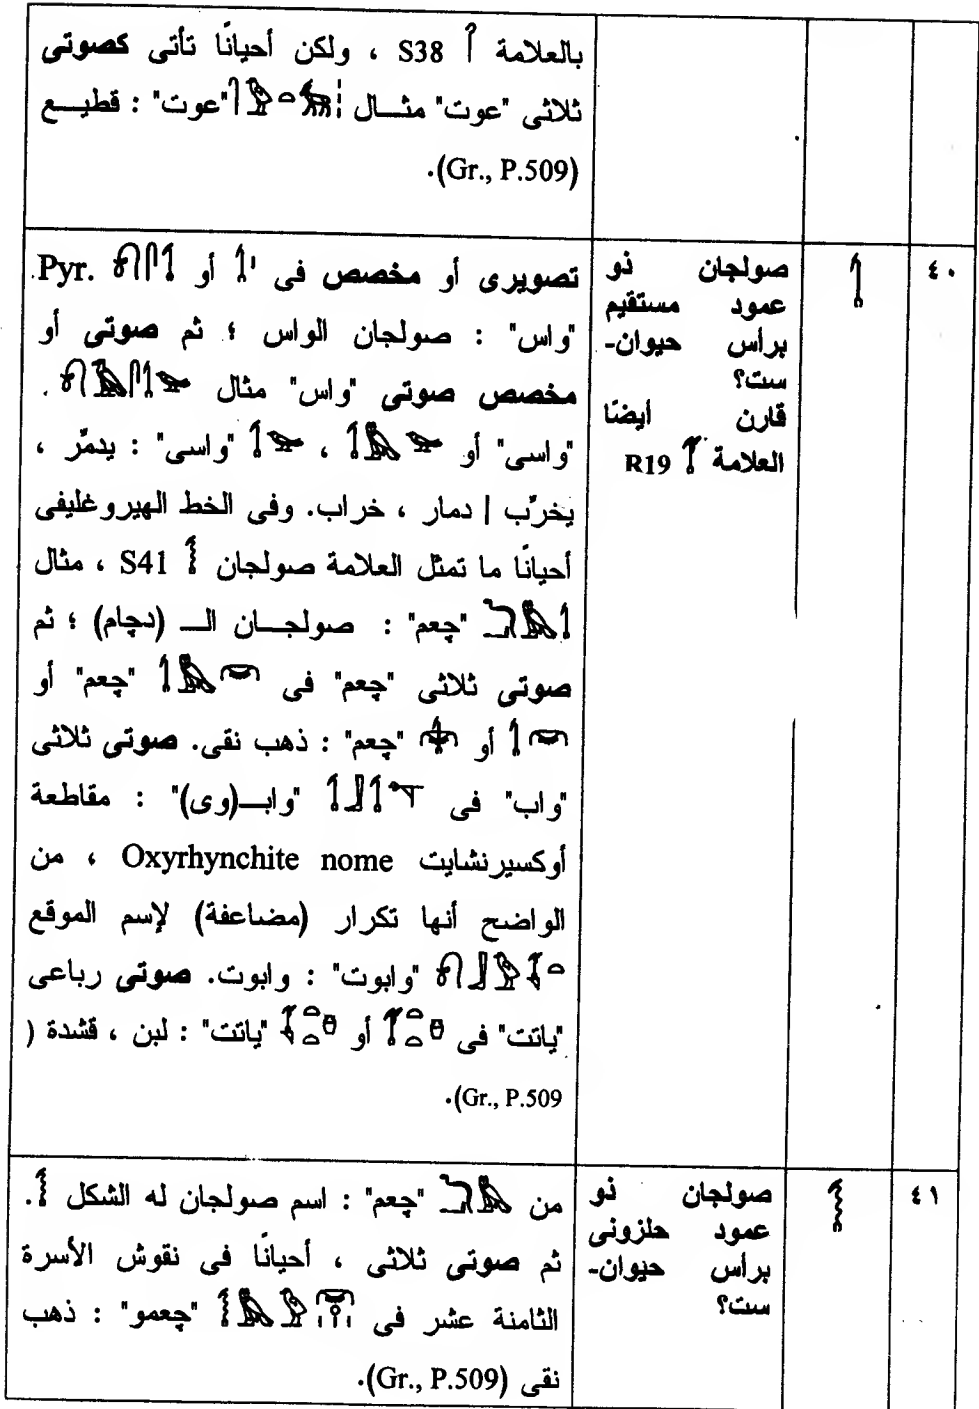 بالعلامة 𓋾 S38 ، ولكن أحيانًا تأتى كصوتى
ثلاثى "عوت" مثال "عوت" : قطيع
(Gr., P.509).
٤٠
صولجان ذو
عمود مستقيم
برأس حيوان-
ست؟
قارن أيضًا
العلامة R19
تصويرى أو مخصص فى 𓌀 أو Pyr.
"واس" : صولجان الواس ؛ ثم صوتى أو
مخصص صوتى "واس" مثال
"واسى" أو ، "واسى" : يدمّر ،
يخرّب | دمار ، خراب. وفى الخط الهيروغليفى
أحيانًا ما تمثل العلامة صولجان 𓌂 S41 ، مثال
"چعم" : صولجان الـ (دچام) ؛ ثم
صوتى ثلاثى "چعم" فى "چعم" أو
أو "چعم" : ذهب نقى. صوتى ثلاثى
"واب" فى "وابـ(وى)" : مقاطعة
أوكسيرنشايت Oxyrhynchite nome ، من
الواضح أنها تكرار (مضاعفة) لإسم الموقع
"وابوت" : وابوت. صوتى رباعى
"ياتت" فى أو "ياتت" : لبن ، قشدة (
Gr., P.509).
٤١
صولجان ذو
عمود حلزونى
برأس حيوان-
ست؟
من "چعم" : اسم صولجان له الشكل 𓌂.
ثم صوتى ثلاثى ، أحيانًا فى نقوش الأسرة
الثامنة عشر فى "چعمو" : ذهب
نقى (Gr., P.509).